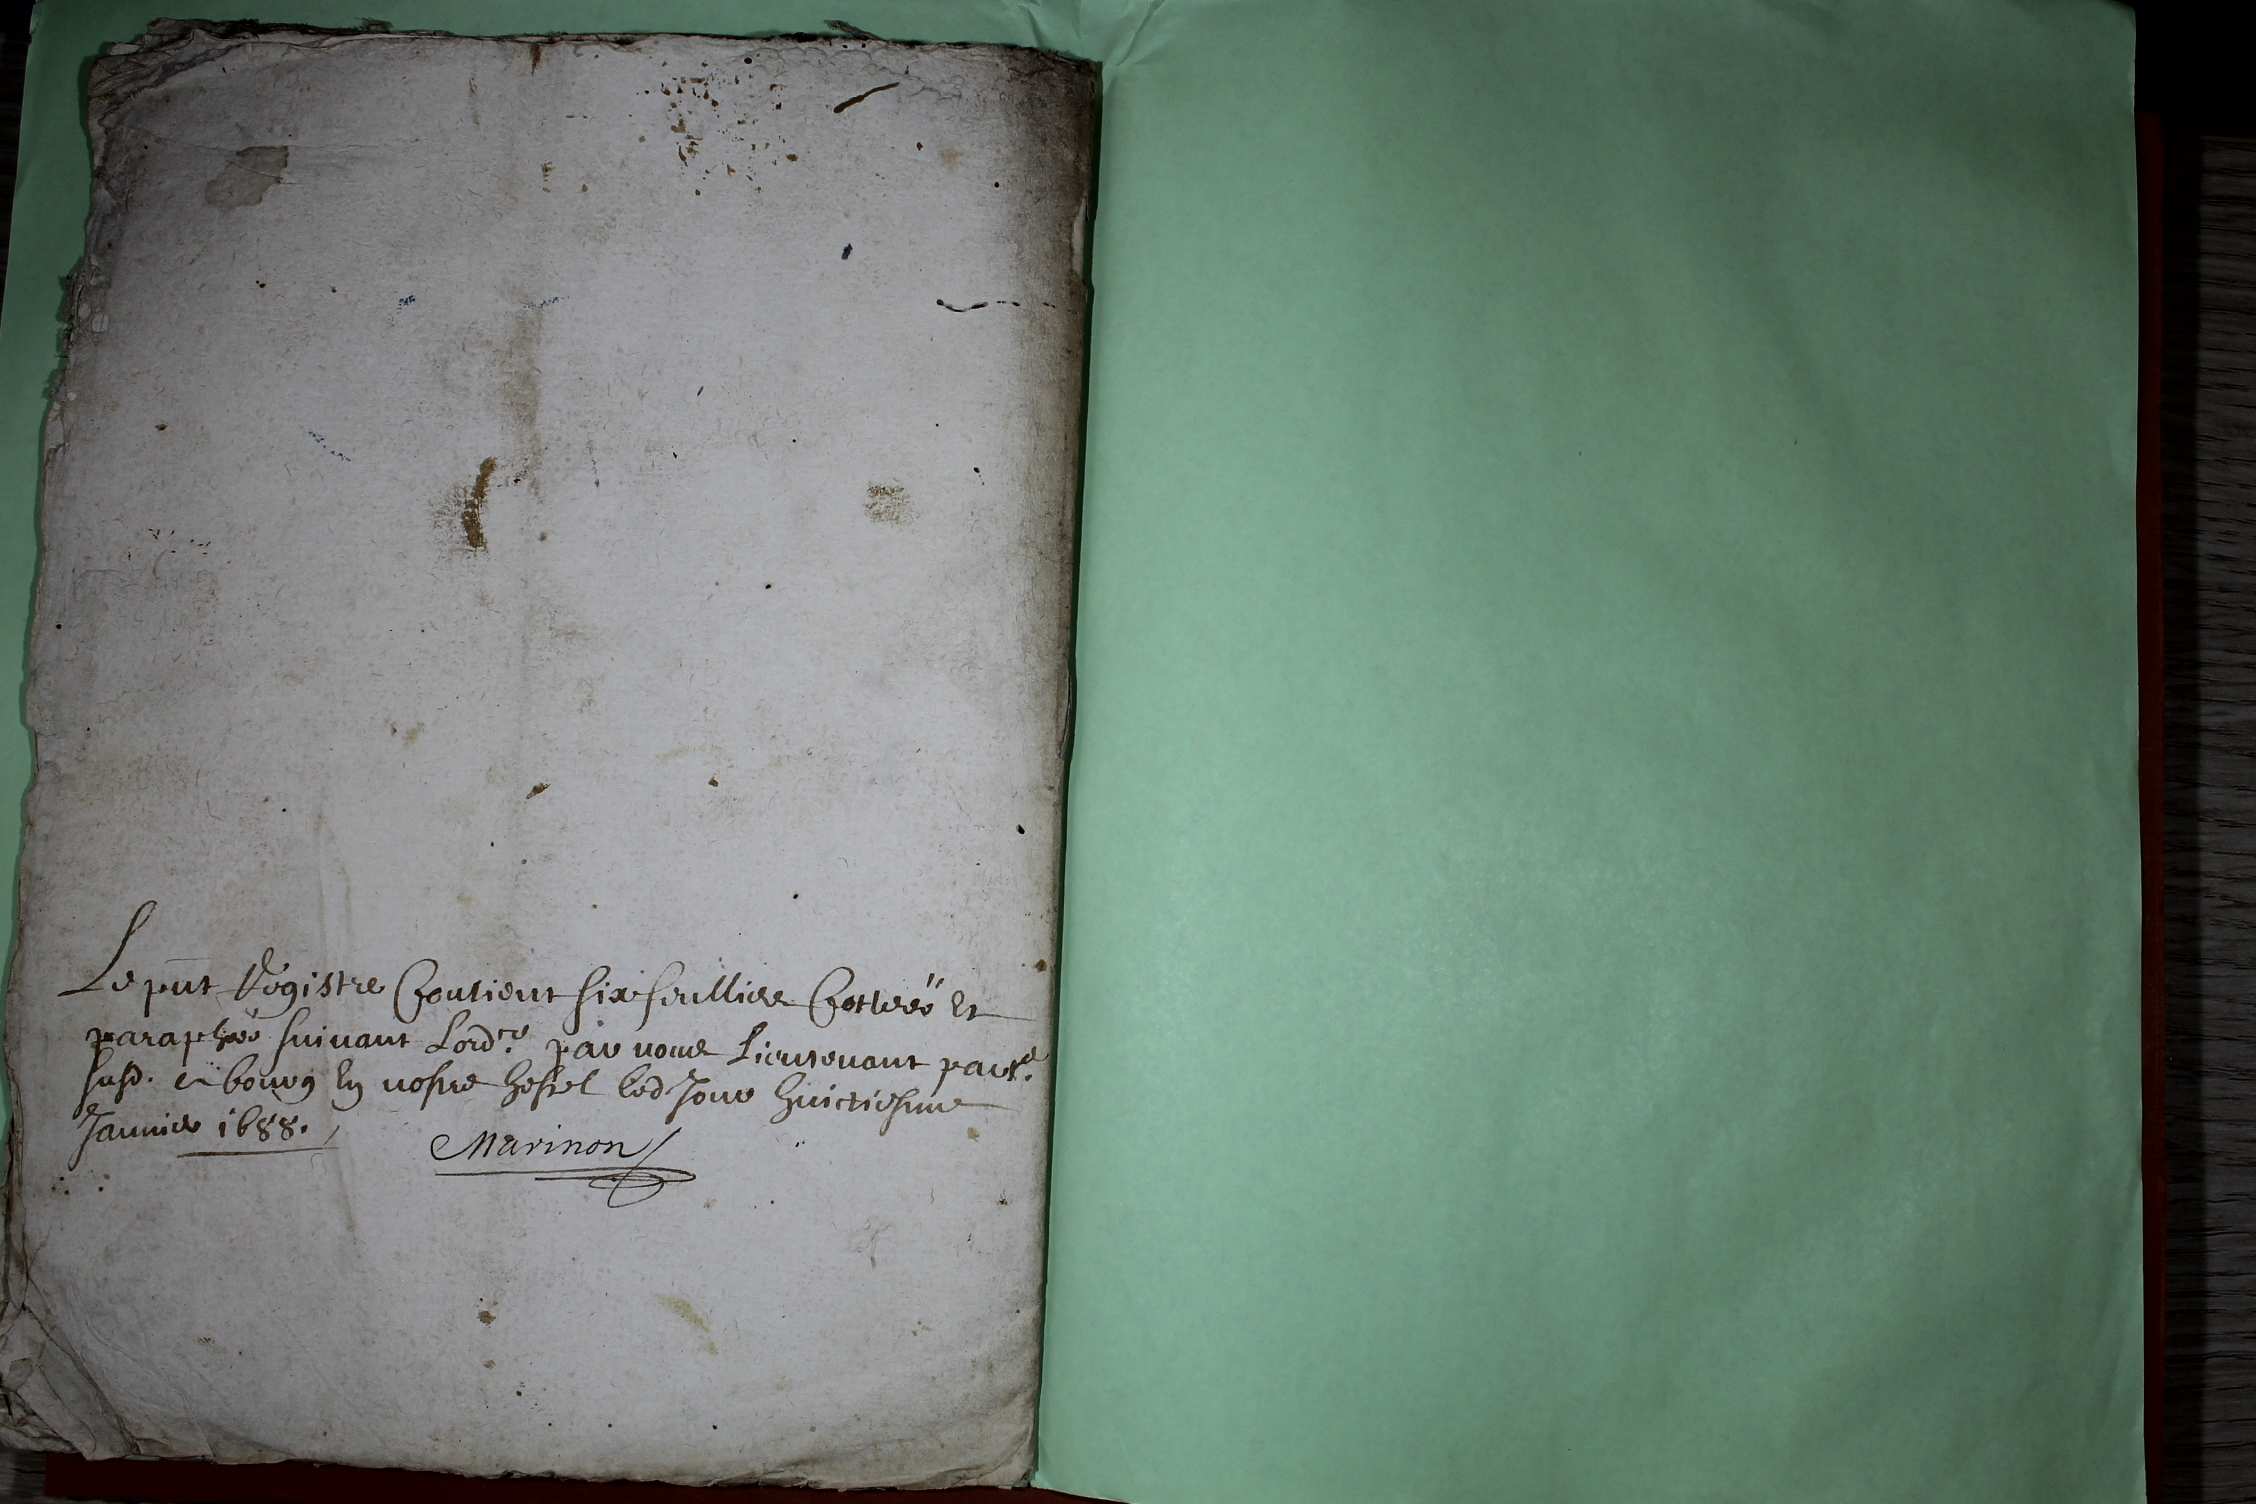 Le pnt Registre Contient six feullies Cotteés Et
paraphéé suivant Lord.ce par nous Lieutenant part.
susd. a bourg En nostre hostel led Jour huictiesme
Januier 1688.
Marinon